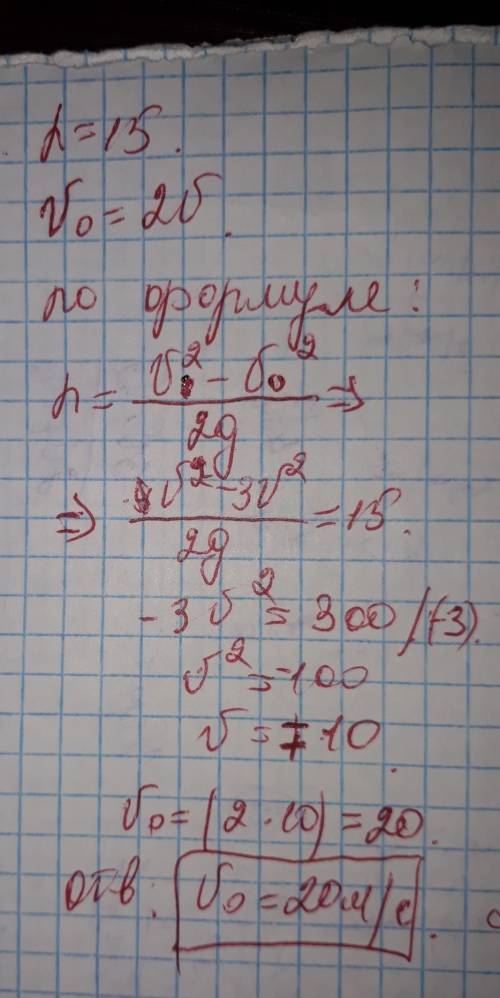 h=15.
V₀=2V.
по формуле:
h = (V² - V₀²)/2g ⇒
⇒ (V² - 3V²)/2g = 15.
-3V² = 300 /(-3).
V² = -100
V = ∓10.
V₀ = |2·10| = 20.
отв: V₀ = 20м/с.